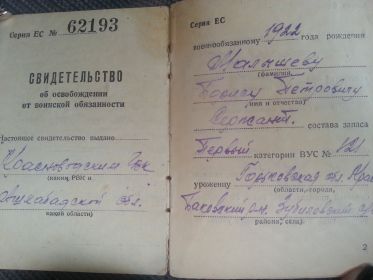 Серия ЕС № 62193
СВИДЕТЕЛЬСТВО
об освобождении
от воинской обязанности
Настоящее свидетельство выдано
Красноводским
(каким РВК и
Ашхабадской обл.
какой области)
Серия ЕС
военнообязанному 1922 года рождения
Малышеву
(фамилия,
Борису Петровичу
имя и отчество)
Сержант состава запаса
Первый категории ВУС № 121
уроженцу Горьковская обл.
(области, города,
Баковский
района, села).
2